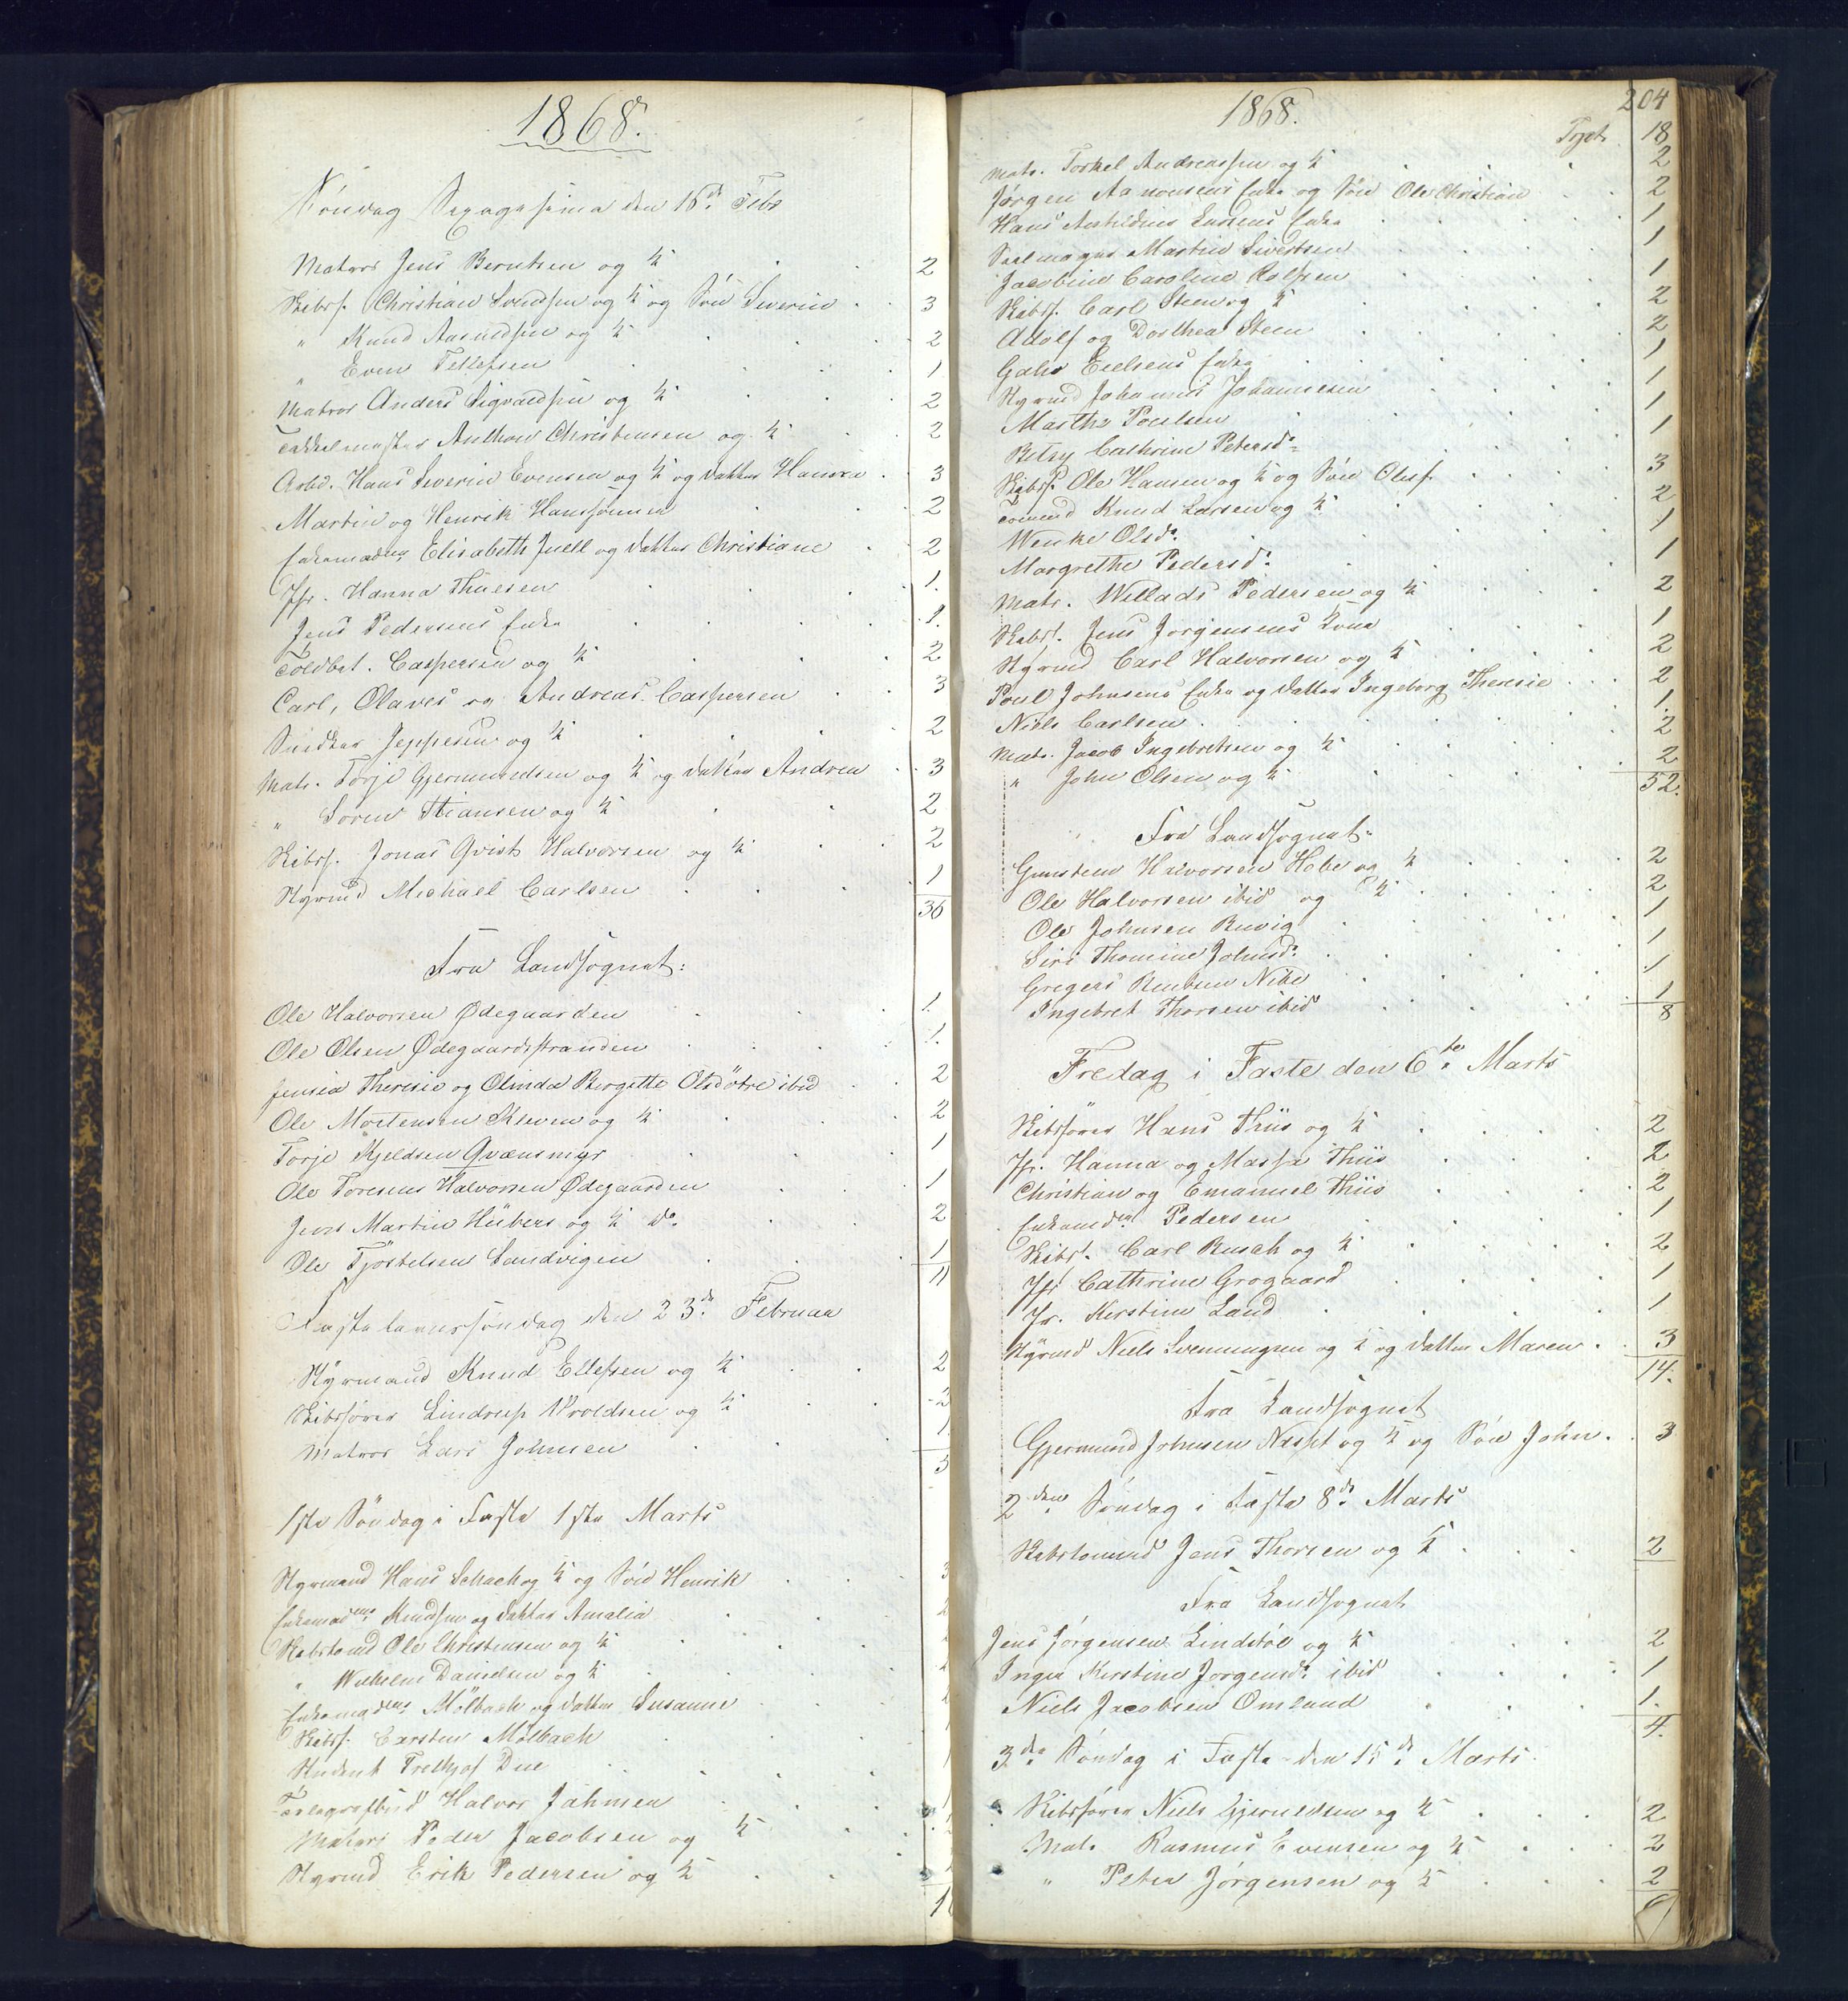 1868.
Søndag Sexagesima den 16de Febr
Matros Jens Berntsen og K 2
Skibsf. Christian Svendsen og K og Søn Severin 3
" Knud Aanundsen og K 2
" Even Tellefsen 1
Matros Anders Sigvaldsen og K 2
Takkelmester Anthon Christensen og K 2
Arbd. Hans Severin Evensen og K og Datter Hanna 3
Martin og Henrik Hanssønner 2
Enkemadme Elisabeth Juell og Datter Christiane 2
Jfr. Hanna Thuesen 1.
Jens Pedersens Enke 1.
Toldbet. Caspersen og K 2
Carl, Olaves og Andreas Caspersen 3
Snedker Jeppesen og K 2
Matr. Torje Gjermundsen og K og Datter Andrea 3
" Søren Stiansen og K 2
Skibsf. Jonas Qvist Halvorsen og K 2
Styrmd Michael Carlsen 1
36
Fra Landsognet:
Ole Halvorsen Ødegaarden 1.
Ole Olsen Ødegaardsstranden 1.
Jensia Theresie og Olinda Birgitte Olsdøtre ibid 2
Ole Mortensen Kleven og K 2
Torje Kjeldsen Qvænsmyr 1
Ole Toresens Halvorsen Ødegaarden 1
Jens Martin Hübers og K do 2
Ole Tjøstelsen Sandvigen 1
11
Fastelavnssøndag den 23de Februar
Styrmand Knud Ellefsen og K 2
Skibsfører Lindrup Wroldsen og K 2
Matros Lars Johnsen 1.
5
1ste Søndag i Faste 1ste Marts
Styrmand Hans Schach og K og Søn Henrik 3
Enkemadme Knudsen og Datter Amalia
Skibstmd Ole Christensen og K
" Wilhelm Danielsen og K
Enkemadme Mölbach og Datter Susanne
Skibsf. Carsten Mölbach
Student Frethjof Due
Telegrafbud Halvor Jahnsen
Matros Peder Jacobsen og K
Styrmd Erik Pedersen og K
1868.
204
Tpt. 18
Matr. Torkel Andreassen og K 2
Jørgen Aanonsens Enke og Søn Ole Christian 2
Hans Larsens Enke 1
Seilmager Martin Sivertsen 1
Jacobine Caroline Rolfsen 1
Skibsf. Carl Steen og K 2
Adolf og Dorthea Steen 2
Eielsens Enke 1
Styrmd Johannes Johannesen 1
Marthe Poulsen 1
Betsy Cathrine Petersd. 1
Skibsf. Ole Hansen og K og Søn Oluf 3
Tømmd Knud Larsen og K 2
Wenke Olsd. 1
Margrethe Pedersd. 1
Matr. Willads Pedersen og K 2
Skibsf. Jens Jørgensens Kone 1
Styrmd Carl Halvorsen og K 2
Poul Johnsens Enke og Datter Ingeborg Theresie 2
Niels Carlsen 1.
Matr. Jacob Ingebretsen og K 2
" John Olsen og K 2
52.
Fra Landsognet:
Gunsten Halvorsen Hebe og K 2
Ole Halvorsen ibid og K 2
Ole Johnsen Buvig 1
Siri Thomine Johnsd. 1
Gregers Reutsen Nibe 1
Ingebret Thorsen ibid 1
8
Fredag i Faste den 6te Marts
Skibsfører Hans Thiis og K 2
Jfr. Hanna og Massa Thiis 2
Christian og Emanuel Thiis 2
Enkemdm Pedersen 1
Skibsf. Carl Busch og K 2
Jfr Cathrine Grogaard 1
Jfr. Kirstine Lund 1
Styrmd Niels Svenningsen og K og Datter Maren 3
14.
Fra Landsognet
Gjermund Johnsen Næset og K og Søn John 3
2den Søndag i Faste 8de Marts
Skibstømmd Jens Thorsen og K 2
Fra Landsognet
Jens Jørgensen Lindstøl og K 2
Inger Kirstine Jørgensd. ibid 1
Niels Jacobsen Omland 1.
4.
3die Søndag i Faste den 15de Marts.
Skibsfører Niels Gjeruldsen og K 2
Matr. Rasmus Evensen og K 2
" Peter Jørgensen og K 2
6